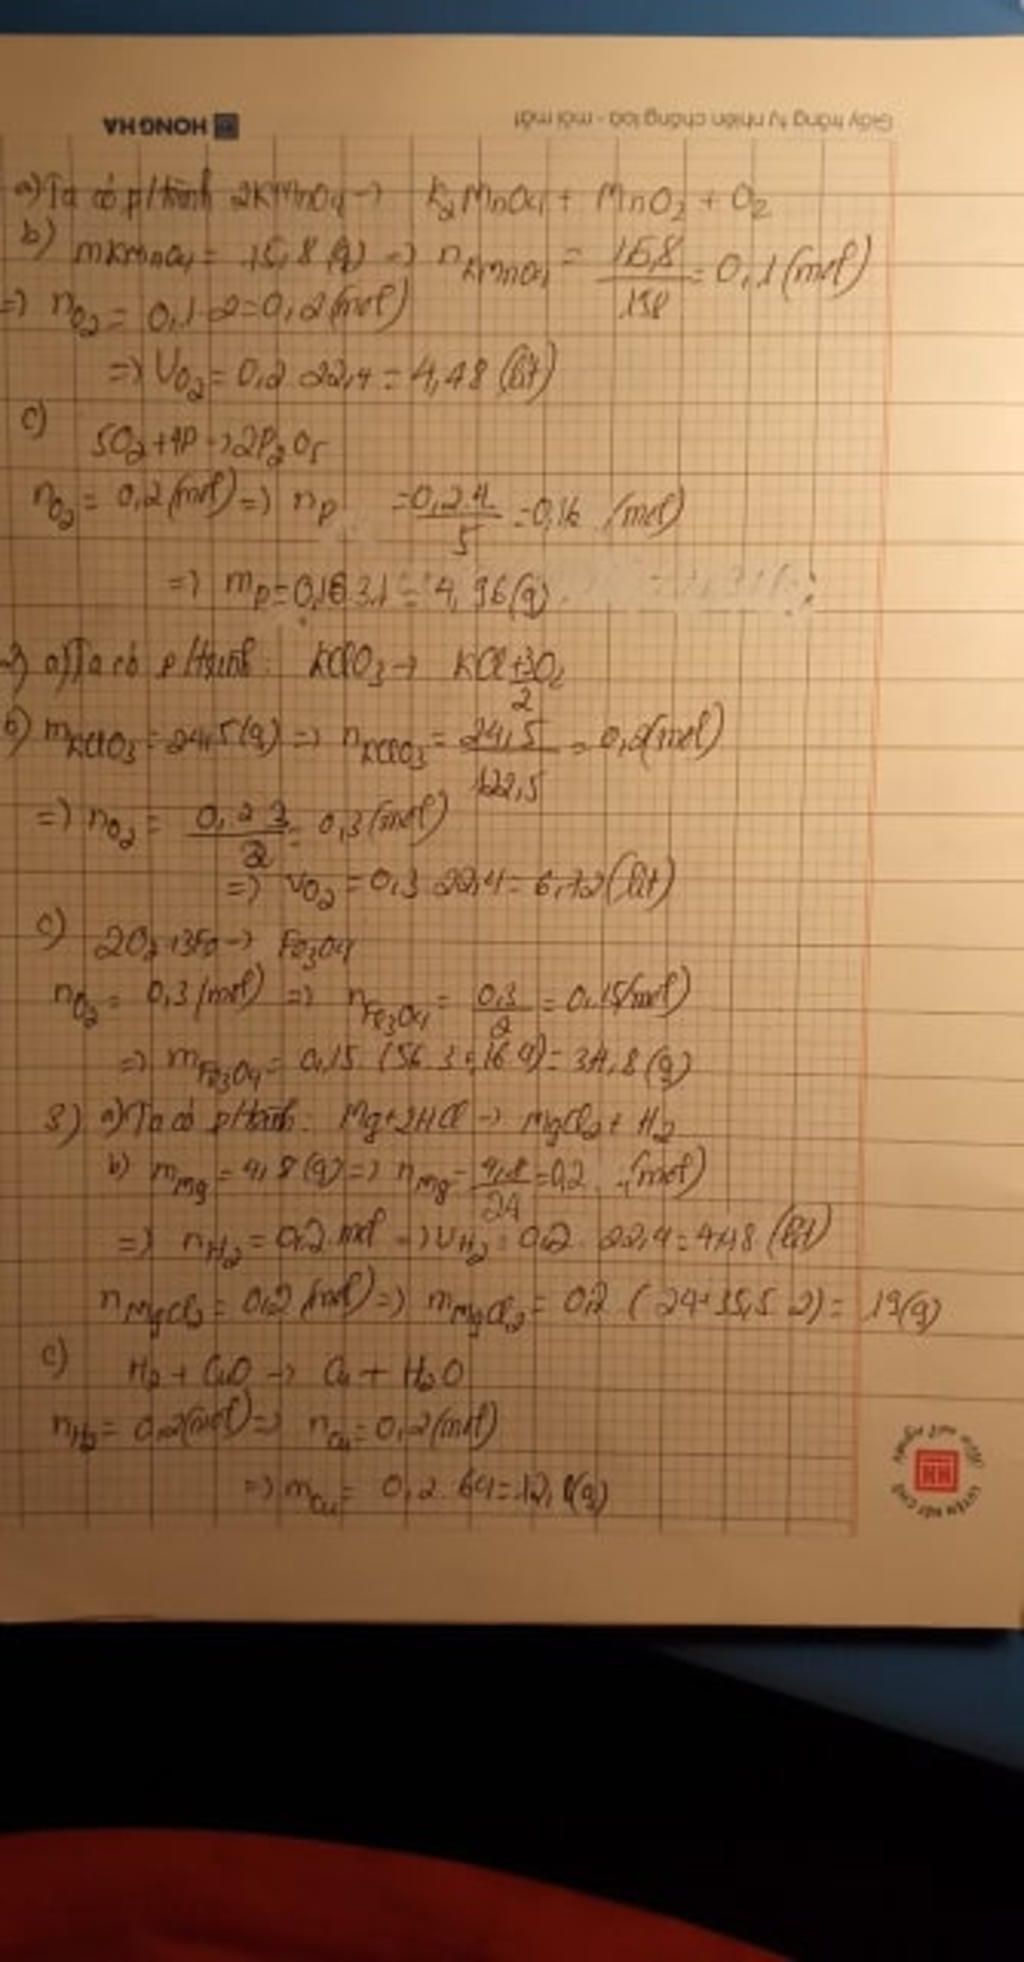 HONG HA
Giấy trắng tự nhiên chống loá - mỏi mắt
a) Ta có p/trình 2KMnO4 → K2MnO4 + MnO2 + O2
b) mKMnO4 = 15,8 (g) => nKMnO4 = 15,8/158 = 0,1 (mol)
=> nO2 = 0,1.2 = 0,2 (mol)
=> VO2 = 0,2.22,4 = 4,48 (lít)
c) 5O2 + 4P → 2P2O5
nO2 = 0,2 (mol) => nP = 0,2.4/5 = 0,16 (mol)
=> mP = 0,16.31 = 4,96 (g)
2) a) Ta có p/trình: KClO3 → KCl + 3/2O2
b) mKClO3 = 24,5 (g) => nKClO3 = 24,5/122,5 = 0,2 (mol)
=> nO2 = 0,2.3/2 = 0,3 (mol)
=> VO2 = 0,3.22,4 = 6,72 (lít)
c) 2O2 + 3Fe → Fe3O4
nO2 = 0,3 (mol) => nFe3O4 = 0,3/2 = 0,15 (mol)
=> mFe3O4 = 0,15.(56.3+16.4) = 34,8 (g)
3) a) Ta có p/trình: Mg + 2HCl → MgCl2 + H2
b) mMg = 4,8 (g) => nMg = 4,8/24 = 0,2 (mol)
=> nH2 = 0,2 mol → VH2 = 0,2.22,4 = 4,48 (lít)
nMgCl2 = 0,2 (mol) => mMgCl2 = 0,2.(24+35,5.2) = 19 (g)
c) H2 + CuO → Cu + H2O
nH2 = 0,2 (mol) => nCu = 0,2 (mol)
=> mCu = 0,2.64 = 12,8 (g)
HH